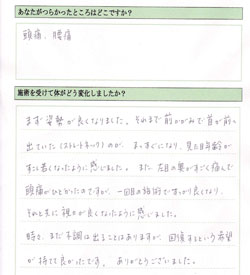 あなたがつらかったところはどこですか？
頭痛、腰痛
施術を受けて体がどう変化しましたか？
まず姿勢が良くなりました。それまで前かがみで首が前へ
出ていた（ストレートネック）のが、まっすぐになり、見た目年齢が
すこし若くなったように感じました。また、左目の奥がすごく痛んで
頭痛がひどかったのですが、一回目の施術ですっかり良くなり、
それと共に視力が良くなったように感じました。
時々、まだ不調は出ることはありますが、回復するという希望
が持てて良かったです。ありがとうございました。